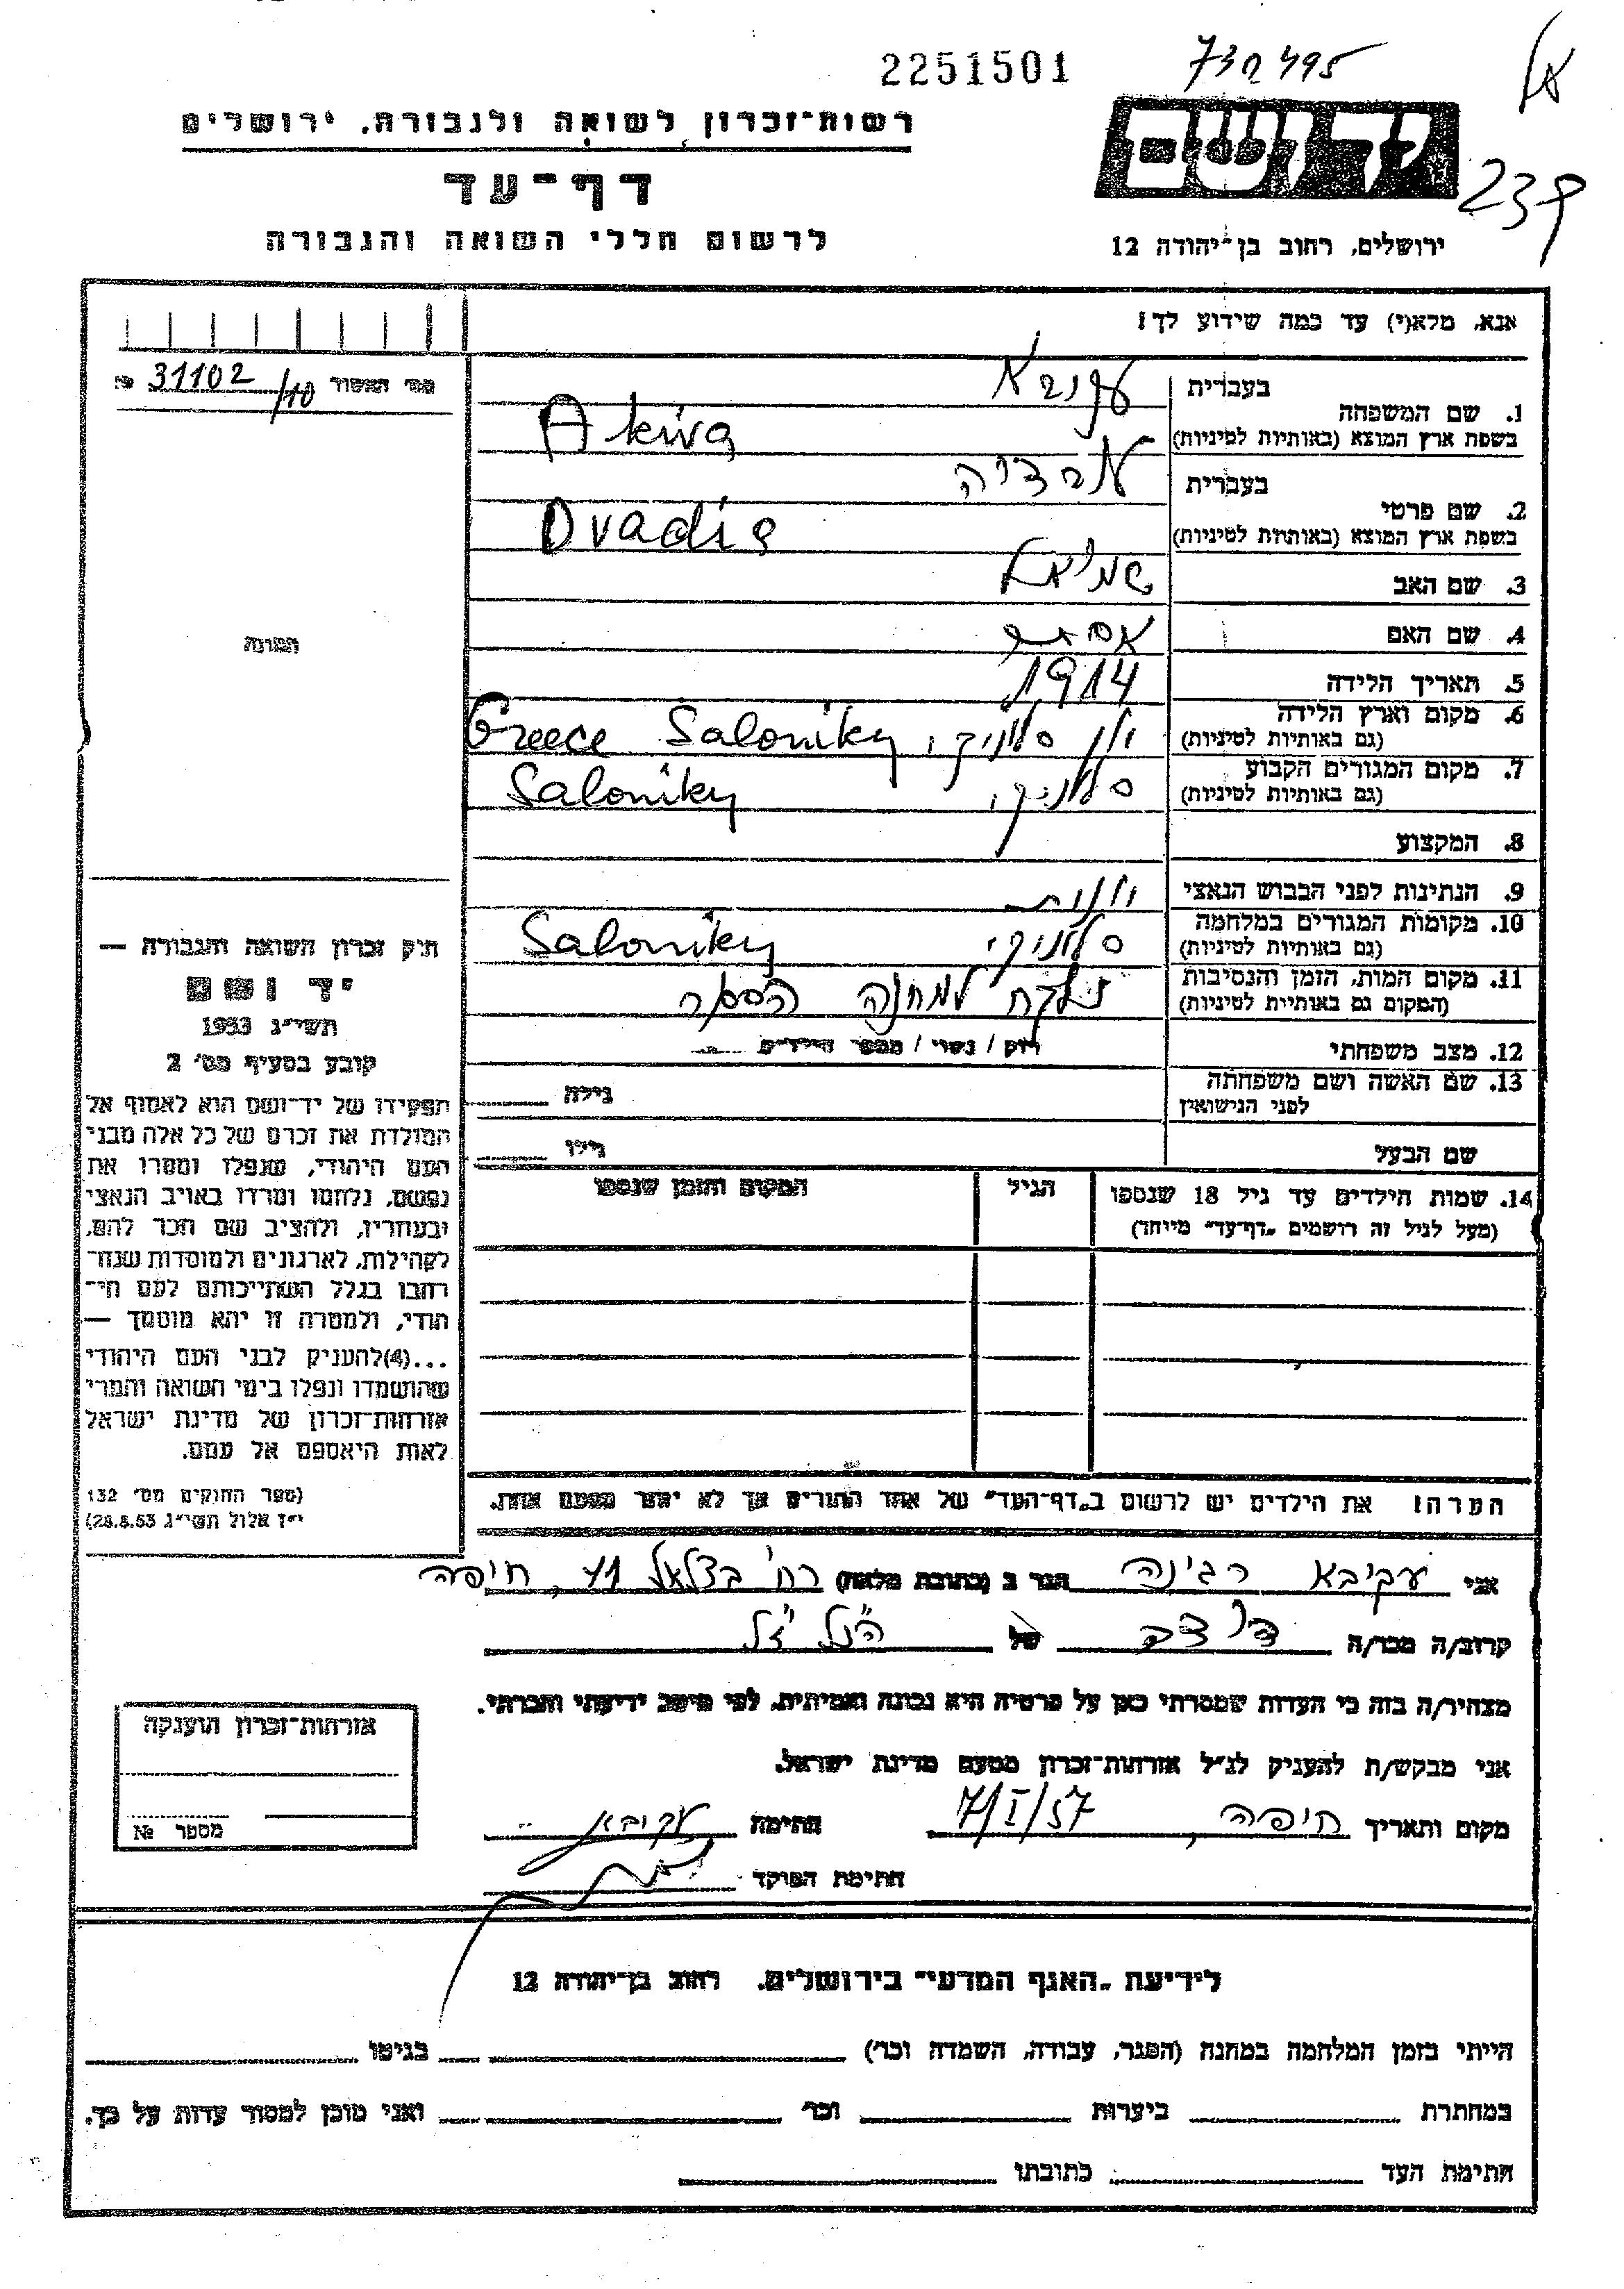 2251501
730495
239
רשות־זכרון לשואה ולגבורה, ירושלים
דף־עד
לרשום חללי השואה והגבורה
יד ושם
ירושלים, רחוב בן־יהודה 12
אנא, מלא(י) עד כמה שידוע לך!
מס׳ האשור 31102/10 №
1. שם המשפחה
בעברית עקיבא
בשפת ארץ המוצא (באותיות לטיניות) Akiva
2. שם פרטי
בעברית עובדיה
בשפת ארץ המוצא (באותיות לטיניות) Ovadia
3. שם האב שמואל
4. שם האם אסתר
5. תאריך הלידה 1914
6. מקום וארץ הלידה יון סלוניקי, Greece Saloniky
(גם באותיות לטיניות)
7. מקום המגורים הקבוע סלוניקי Saloniky
(גם באותיות לטיניות)
8. המקצוע
9. הנתינות לפני הכבוש הנאצי יונית
10. מקומות המגורים במלחמה סלוניקי Saloniky
(גם באותיות לטיניות)
11. מקום המות, הזמן והנסיבות נלקח למחנה הסגר
(המקום גם באותיות לטיניות)
12. מצב משפחתי רוק / נשוי / מספר הילדים
13. שם האשה ושם משפחתה
לפני הנישואין
גילה
שם הבעל גילו
14. שמות הילדים עד גיל 18 שנספו הגיל המקום והזמן שנספו
(מעל לגיל זה רושמים „דף־עד״ מיוחד)
הערה! את הילדים יש לרשום ב„דף־העד״ של אחד ההורים אך לא יותר מפעם אחת.
התמונה
חוק זכרון השואה והגבורה —
יד ושם
תשי״ג 1953
קובע בסעיף מס׳ 2
תפקידו של יד־ושם הוא לאסוף אל
המולדת את זכרם של כל אלה מבני
העם היהודי, שנפלו ומסרו את
נפשם, נלחמו ומרדו באויב הנאצי
ובעוזריו, ולהציב שם וזכר להם,
לקהילות, לארגונים ולמוסדות שנח־
רבו בגלל השתייכותם לעם הי־
הודי, ולמטרה זו יהא מוסמך —
...(4)להעניק לבני העם היהודי
שהושמדו ונפלו בימי השואה והמרי
אזרחות־זכרון של מדינת ישראל
לאות היאספם אל עמם.
(ספר החוקים מס׳ 132
י״ז אלול תשי״ג 28.8.53)
אני עקיבא רגינה הגר ב (כתובת מלאה) רח׳ בצלאל 71, חיפה
קרוב/ה מכר/ה של הנ״ל ז״ל
מצהיר/ה בזה כי העדות שמסרתי כאן על פרטיה היא נכונה ואמיתית, לפי מיטב ידיעתי והכרתי.
אני מבקש/ת להעניק לנ״ל אזרחות־זכרון מטעם מדינת ישראל.
מקום ותאריך חיפה, 7/I/57 חתימה עקיבא
חתימת הפוקד
אזרחות־זכרון הוענקה
מספר №
לידיעת „האגף המדעי״ בירושלים, רחוב בן־יהודה 12
הייתי בזמן המלחמה במחנה (הסגר, עבודה, השמדה וכו׳) בגיטו
במחתרת ביערות וכו׳ ואני מוכן למסור עדות על כך.
חתימת העד כתובתו